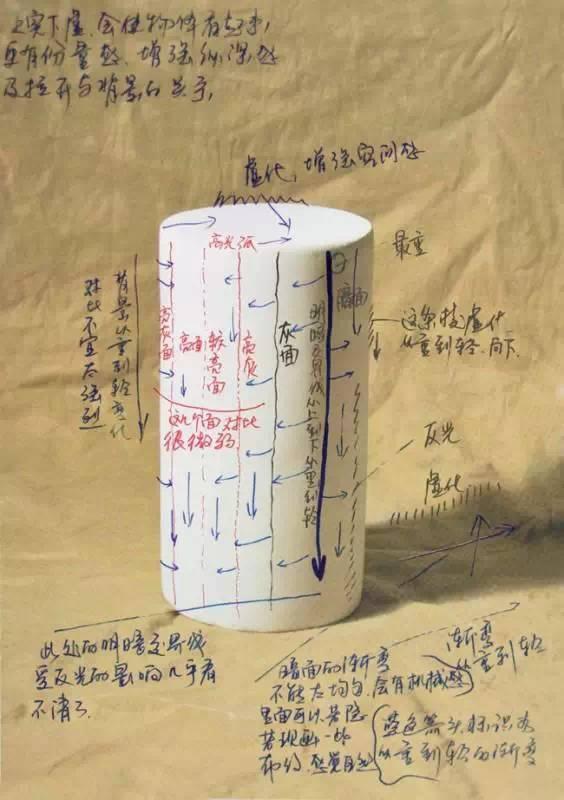 上实下虚、会使物体有起来,
更有份量感、增强纵深感
及拉开与背景的关系,
虚化,增强空间感
高光弧
最重
背景从重到轻变化
对比不宜太强烈
亮灰面
亮面
较亮面
亮灰
灰面
明暗交界线从上到下从重到轻
暗面
这条线虚化
从重到轻.向下
这几个面对比
很微弱.
反光
虚化
此处的明暗交界线
受反光的影响几乎看
不清了.
渐变
从重到轻
暗面的渐变
不能太均匀,会有机械感
里面可以若隐
若现画一些
布纹,感觉自然
蓝色箭头标识为
从重到轻的渐变